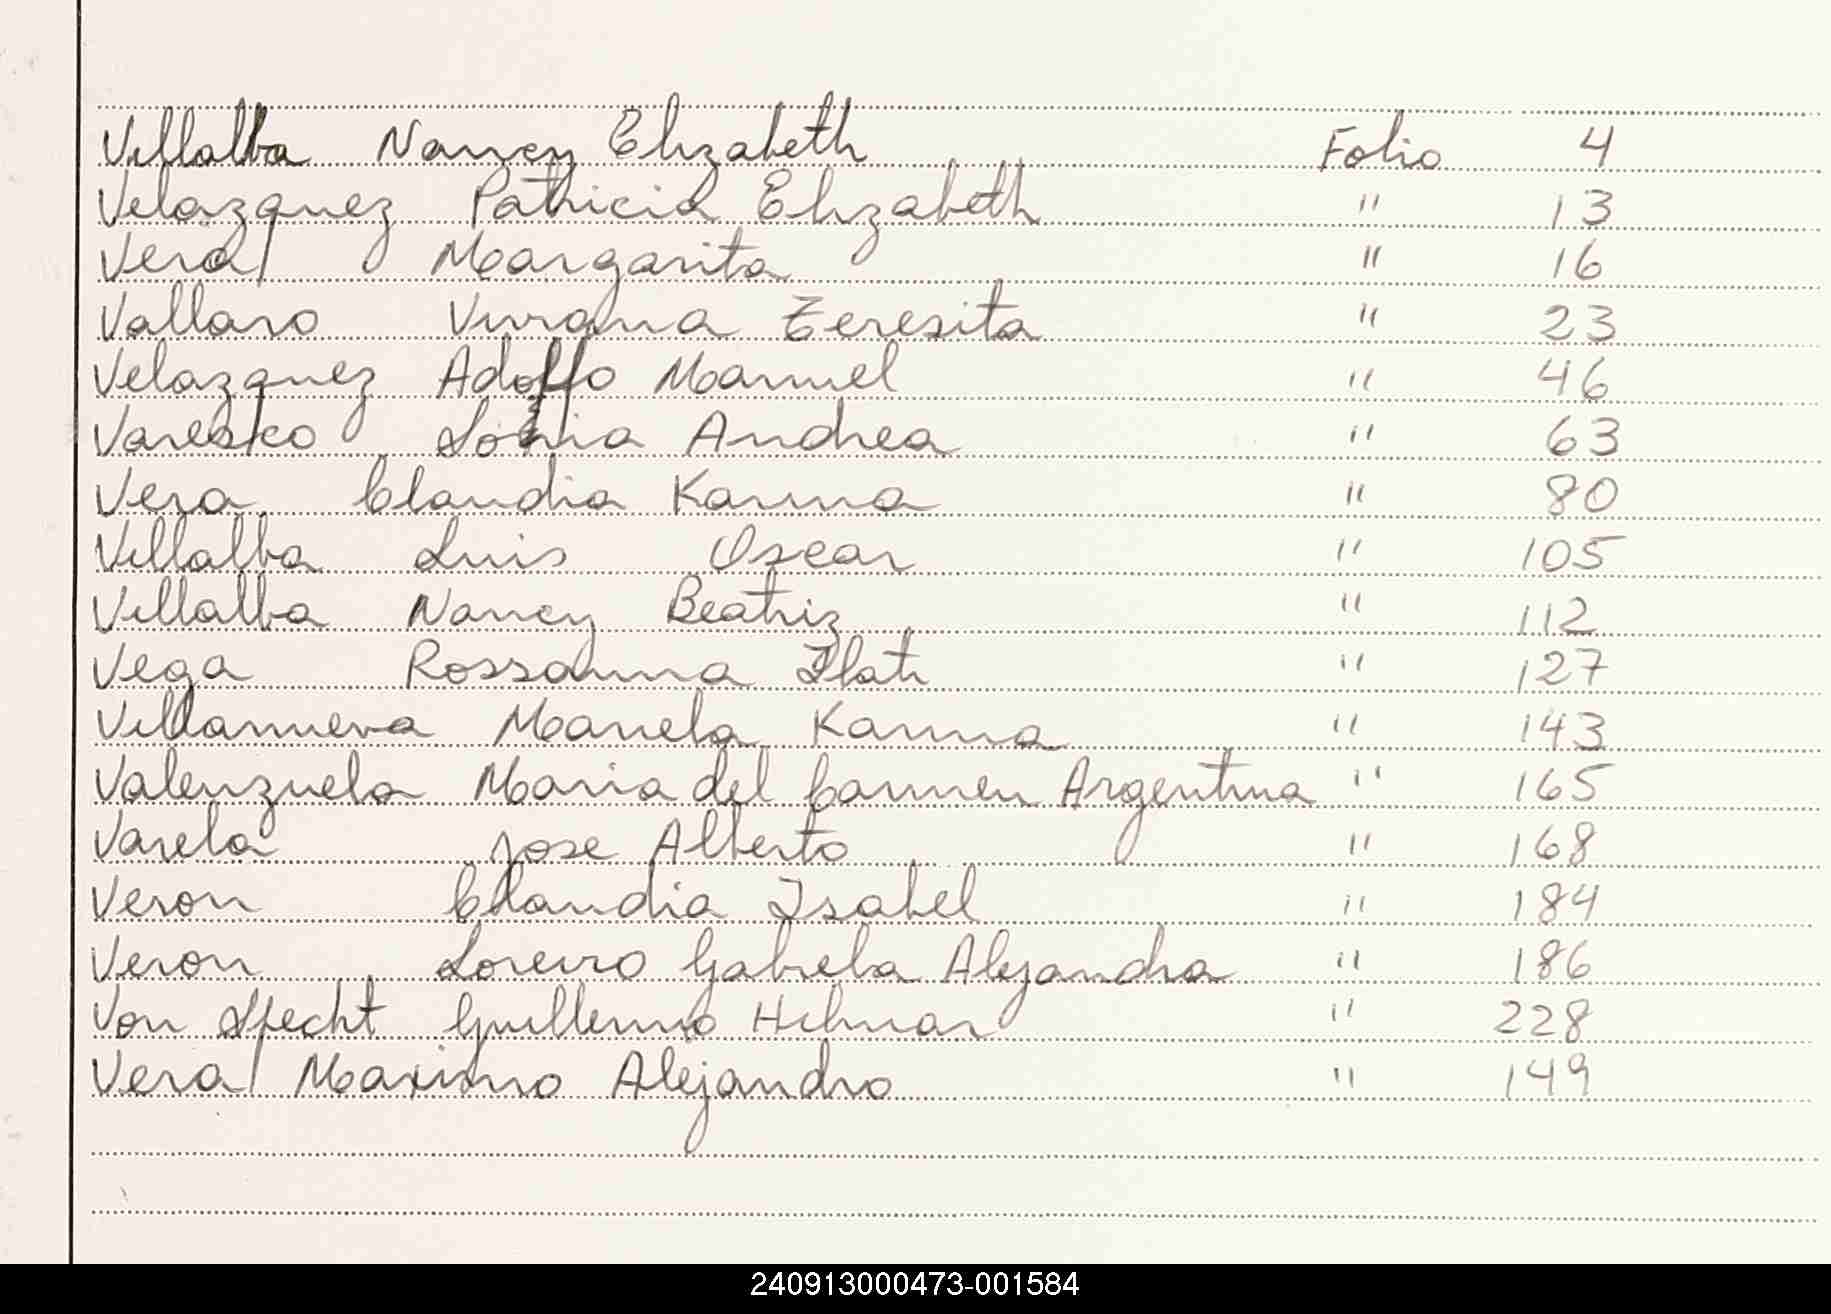 Villalba Nancy Elizabeth Folio 4
Velazquez Patricia Elizabeth " 13
Vera Margarita " 16
Vallaro Viviana Teresita " 23
Velazquez Adolfo Manuel " 46
Varesko Sonia Andrea " 63
Vera Claudia Karina " 80
Villalba Luis Oscar " 105
Villalba Nancy Beatriz " 112
Vega Rossanna " 127
Villanueva Mariela Karina " 143
Valenzuela Maria del Carmen Argentina " 165
Varela Jose Alberto " 168
Veron Claudia Isabel " 184
Veron Gabriela Alejandra " 186
Von Specht Guillermo Hilmar " 228
Vera Maximo Alejandro " 149
240913000473-001584